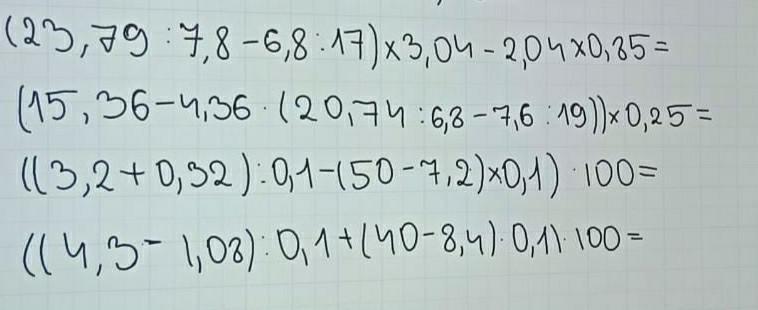 (23,79 : 7,8 - 6,8 : 17) × 3,04 - 2,04 × 0,85 =
(15,36 - 4,36 · (20,74 : 6,8 - 7,6 : 19)) × 0,25 =
((3,2 + 0,32) : 0,1 - (50 - 7,2) × 0,1) · 100 =
((4,3 - 1,08) : 0,1 + (40 - 8,4) · 0,1) · 100 =